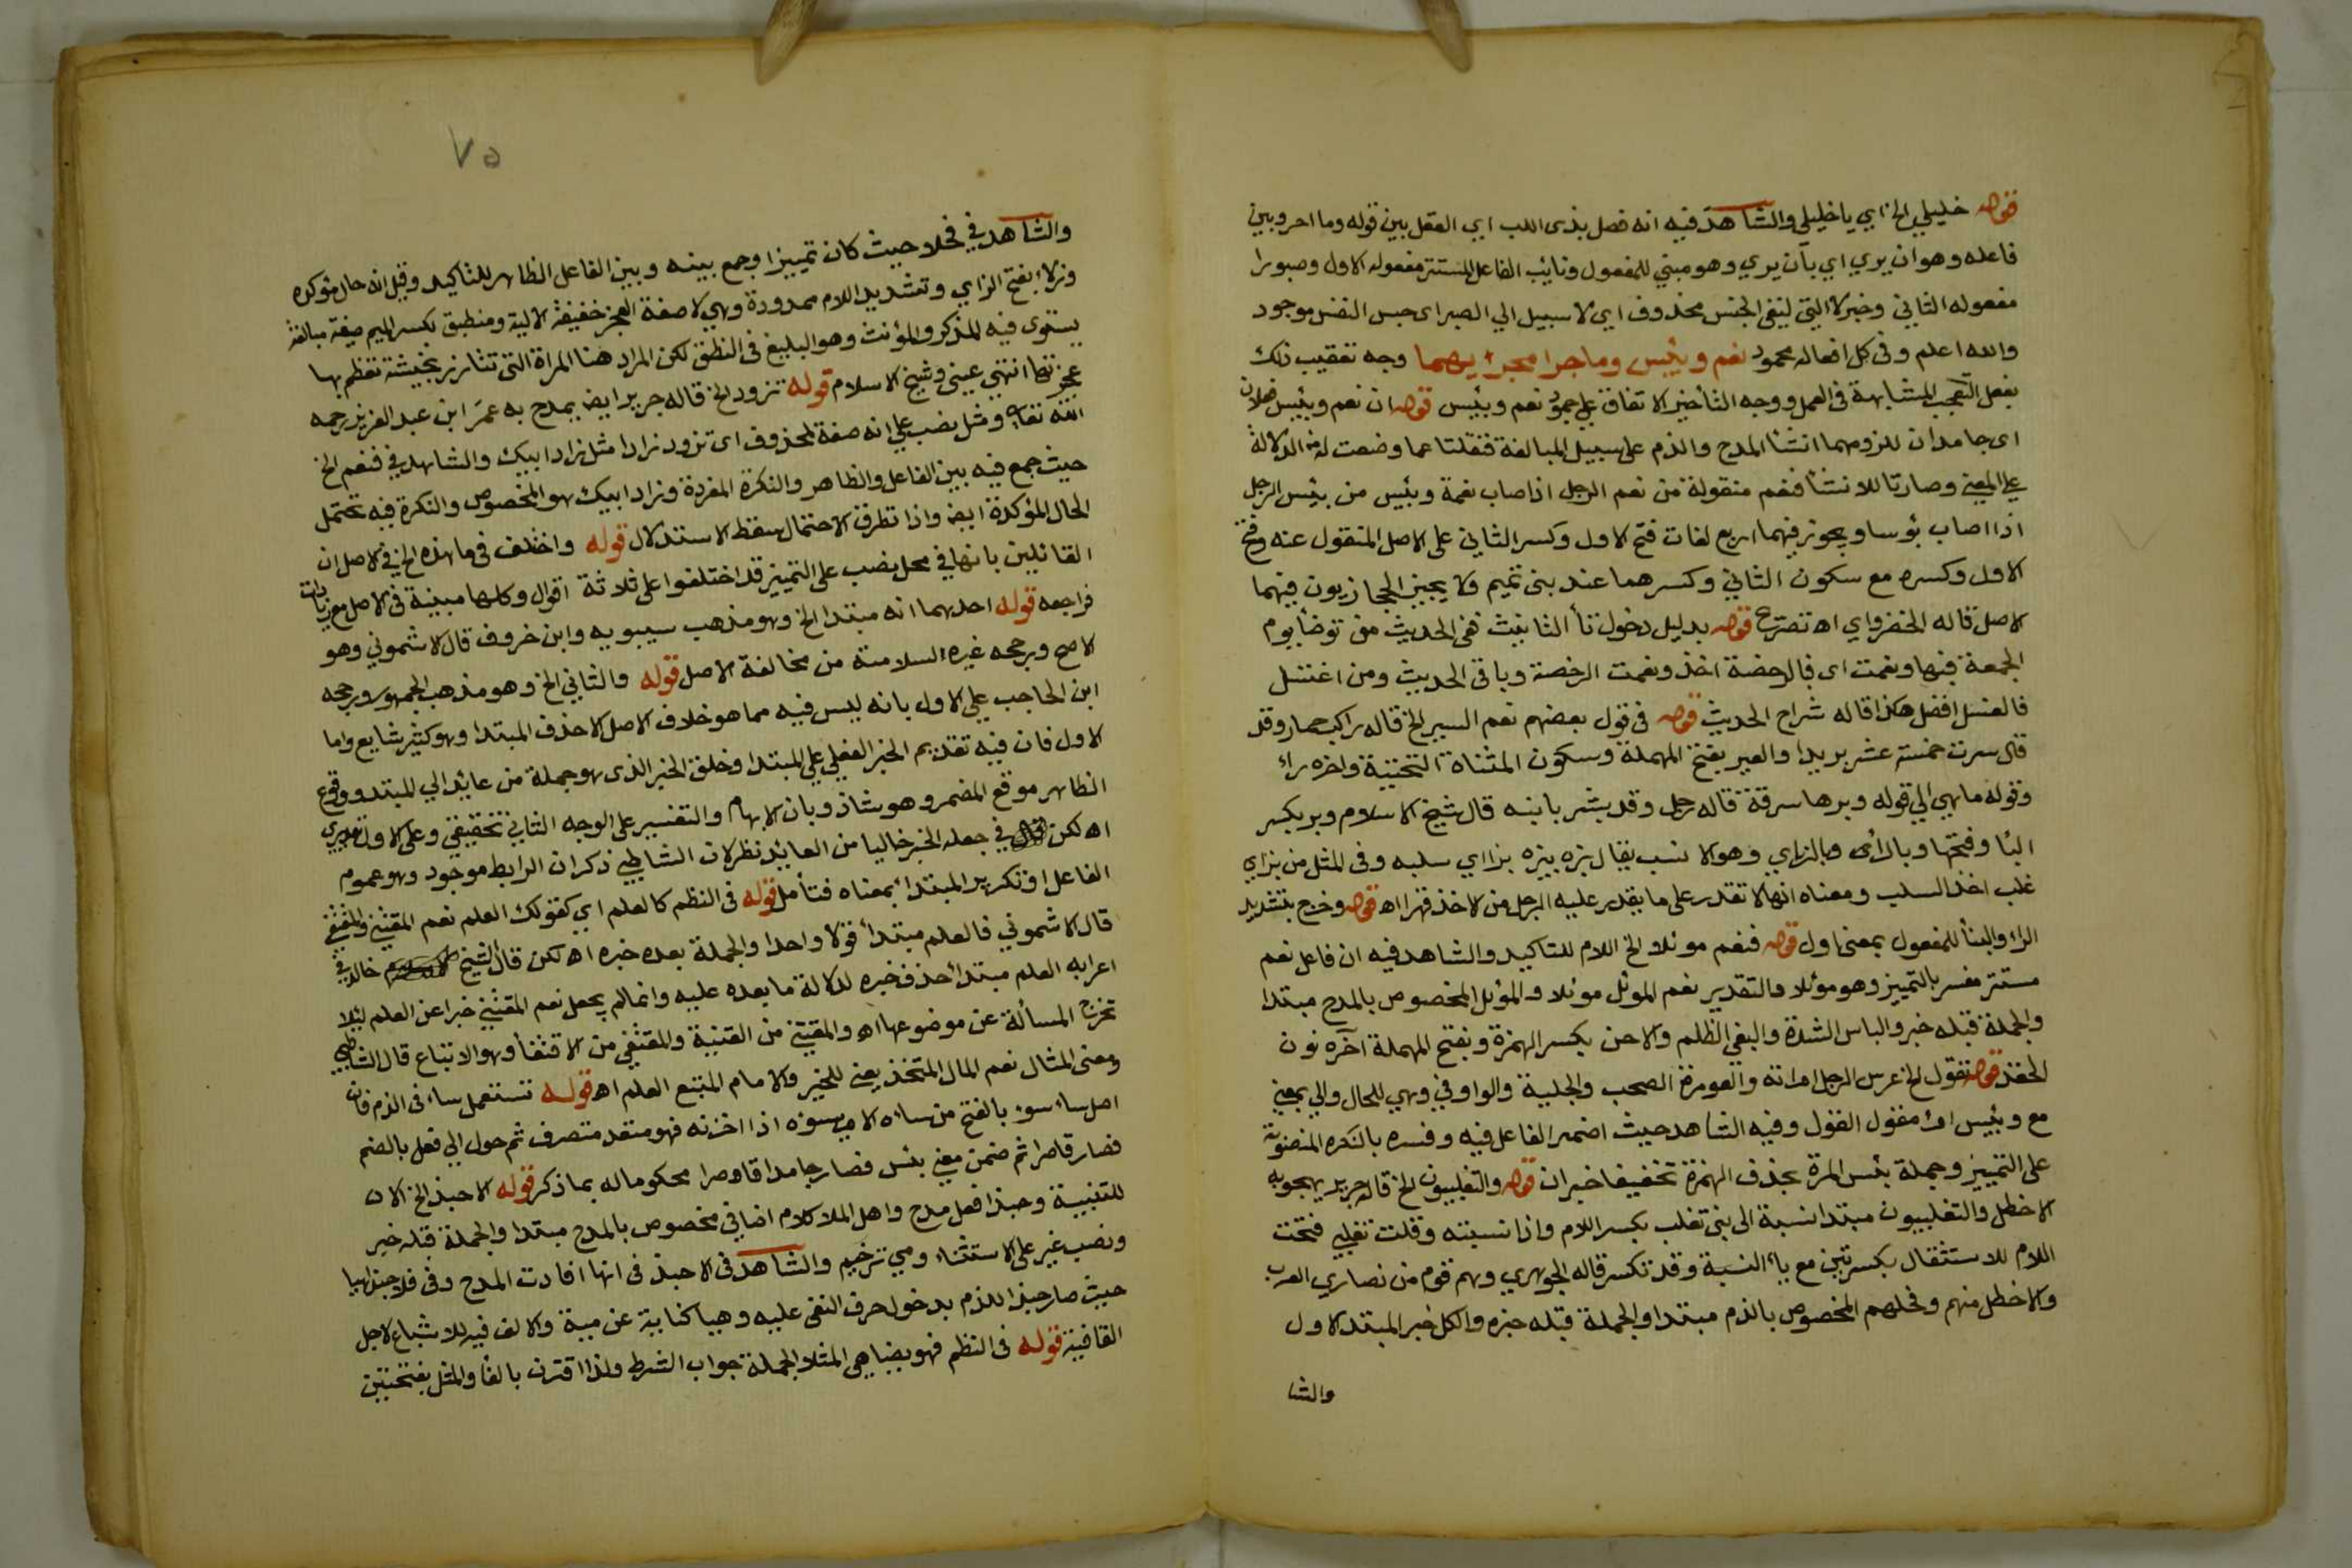 قوله خليلي الخ اي يا خليلي والشاهد فيه انه فصل بذي اللب اي العقل بين قوله وما احر وبين
فاعله وهو ان يري اي بأن يري وهو مبني للمفعول ونائب الفاعل المستتر مفعوله الاول وصبورا
مفعوله الثاني وخبر لا التي لنفي الجنس محذوف اي لا سبيل الي الصبر اي حبس النفس موجود
والله اعلم وفي كل افعاله محمود نعم وبئيس وما جرا مجراهما وجه تعقيب ذلك
بفعل التعجب المشابهة في العمل ووجه التأخير الاتفاق علي جمود نعم وبئيس قوله ان نعم وبئيس فعلان
اي جامدان للزومهما انشا المدح والذم على سبيل المبالغة فنقلتا عما وضعت له من الدلالة
علي المعني وصارتا للانشأ فنعم منقولة من نعم الرجل اذا صاب نعمة وبئيس من بئيس الرجل
اذا اصاب بؤسا ويجوز فيهما اربع لغات فتح الاول وكسر الثاني على الاصل المنقول عنه وفتح
الاول وكسره مع سكون الثاني وكسرهما عند بني تميم ولا يجيز الحجازيون فيهما
الاصل قاله الخضراوي اه تصريح قوله بدليل دخول تأ التانيث ففي الحديث من توضأ يوم
الجمعة فبها ونعمت اي فبالرخصة اخذ ونعمت الرخصة وباقي الحديث ومن اغتسل
فالغسل افضل هكذا قاله شراح الحديث قوله في قول بعضهم نعم السير الخ قاله راكب حمار وقد
قال سرت خمسة عشر بريدا والعير بفتح المهملة وسكون المثناة التحتية واخره راء
وقوله ما هي الي قوله وبرها سرقة قاله رجل وقد بشر بابنه قال شيخ الاسلام وبر بكسر
البأ وفتحها وبالرأي وبالزاي وهو الانسب يقال بزه يبزه بزا اي سلبه وفي المثل من بز اي
غلب اخذ السلب ومعناه انها لا تقدر على ما يقدر عليه الرجل من الاخذ قهرا اه قوله وخرج بتشديد
الرأ والبنأ للمفعول بمعني اول قوله فنعم موئلا الخ اللام للتاكيد والشاهد فيه ان فاعل نعم
مستتر مفسر بالتمييز وهو موئلا والتقدير نعم الموئل موئلا والموئل المخصوص بالمدح مبتدا
والجملة قبله خبر والباس الشدة والبغي الظلم والاحن بكسر الهمزة وبفتح المهملة آخره نون
الحقد قوله تقول الخ عرس الرجل امراته والعومرة الصخب والجلبة والواو في وهي للحال والي بمعني
مع وبئيس امرأ مقول القول وفيه الشاهد حيث اضمر الفاعل فيه وفسره بالنكره المنصوبة
على التمييز وجملة بئس المرة بحذف الهمزة تخفيفا خبر ان قوله والتغلبيون الخ قاله جرير يهجو به
الاخطل والتغلبيون مبتدا نسبة الى بني تغلب بكسر اللام واذا نسبته وقلت تغلبي فتحت
اللام للاستثقال بكسرتين مع يأ النسبة وقد تكسر قاله الجوهري وهم قوم من نصاري العرب
والاخطل منهم وفحلهم المخصوص بالذم مبتدا والجملة قبله خبره والكل خبر المبتدا الاول
والشا
٧٥
والشاهد في فحلا حيث كان تمييزا وجمع بينه وبين الفاعل الظاهر للتاكيد وقيل انه حال مؤكده
وزلاء بفتح الزاي وتشديد اللام ممدودة وهي لاصقة العجز خفيفة الالية ومنطيق بكسر الميم صيغة مبالغة
يستوي فيه المذكر والمؤنث وهو البليغ في النطق لكن المراد هنا المراة التي تتازر بحشية تعظم بها
عجزتها انتهي عيني وشيخ الاسلام قوله تزود الخ قاله جرير ايضا يمدح به عمر ابن عبد العزيز رحمه
الله تعالي ومثل نصب علي انه صفة لمحذوف اي تزود زادا مثل زاد ابيك والشاهد في فنعم الخ
حيث جمع فيه بين الفاعل والظاهر والنكرة المفردة وزاد ابيك هو المخصوص والنكرة فيه تحتمل
الحال المؤكدة ايضا واذا تطرق الاحتمال سقط الاستدلال قوله واختلف في ما هذه الخ في الاصل ان
القائلين بانها في محل نصب على التمييز قد اختلفوا على ثلاثة اقوال وكلها مبنية في الاصل مع زيادات
فراجعه قوله احدهما انه مبتدا الخ وهو مذهب سيبويه وابن خروف قال الاشموني وهو
الاصح ورجحه غيره لسلامته من مخالفة الاصل قوله والثاني الخ وهو مذهب الجمهور ورجحه
ابن الحاجب علي الاول بانه ليس فيه مما هو خلاف الاصل الا حذف المبتدا وهو كثير شايع واما
الاول فان فيه تقديم الخبر الفعلي علي المبتدا وخلو الخبر الذي هو جملة من عايد الي المبتدا ووقوع
الظاهر موقع المضمر وهو شاذ وبان الابهام والتفسير على الوجه الثاني تحقيقي وعلى الاول تقديري
اه لكن في جعله الخبر خاليا من العايد نظر لان الشاطبي ذكر ان الرابط موجود وهو عموم
الفاعل او تكرير المبتدا بمعناه فتأمل قوله في النظم كالعلم اي كقولك العلم نعم المقتني والمقتفي
قال الاشموني فالعلم مبتدأ قولا واحدا والجملة بعده خبره اه لكن قال الشيخ خالد في
اعرابه العلم مبتدأ حذف خبره لدلالة ما بعده عليه وانما لم يجعل نعم المقتني خبرا عن العلم ليلا
تخرج المسألة عن موضوعها اه والمقتني من القنية والمقتفي من الاقتفأ وهو الاتباع قال الشاطبي
ومعني المثال نعم المال المتخذ يعني للخير والامام المتبع العلم اه قوله تستعمل ساء في الذم فان
اصل ساء سوء بالفتح من ساءه الامر يسوءه اذا احزنه فهو متعد متصرف ثم حول الي فعل بالضم
فصار قاصرا ثم ضمن معني بئس فصار جامدا قاصرا محكوما له بما ذكر قوله الا حبذا الخ الا
للتنبيه وحبذا فعل مدح واهل الملا كلام اضافي مخصوص بالمدح مبتدا والجملة قبله خبر
ونصب غير على الاستثناء ومي ترخيم والشاهد في الا حبذ في انها افادت المدح وفي فلا حبذا هيا
حيث صار حبذا للذم بدخول حرف النفي عليه وهيا كناية عن مية والالف فيه للاشباع لاجل
القافية قوله في النظم فهو يضاهي المثلا الجملة جواب الشرط ولذا اقترن بالفأ والمثل بفتحتين